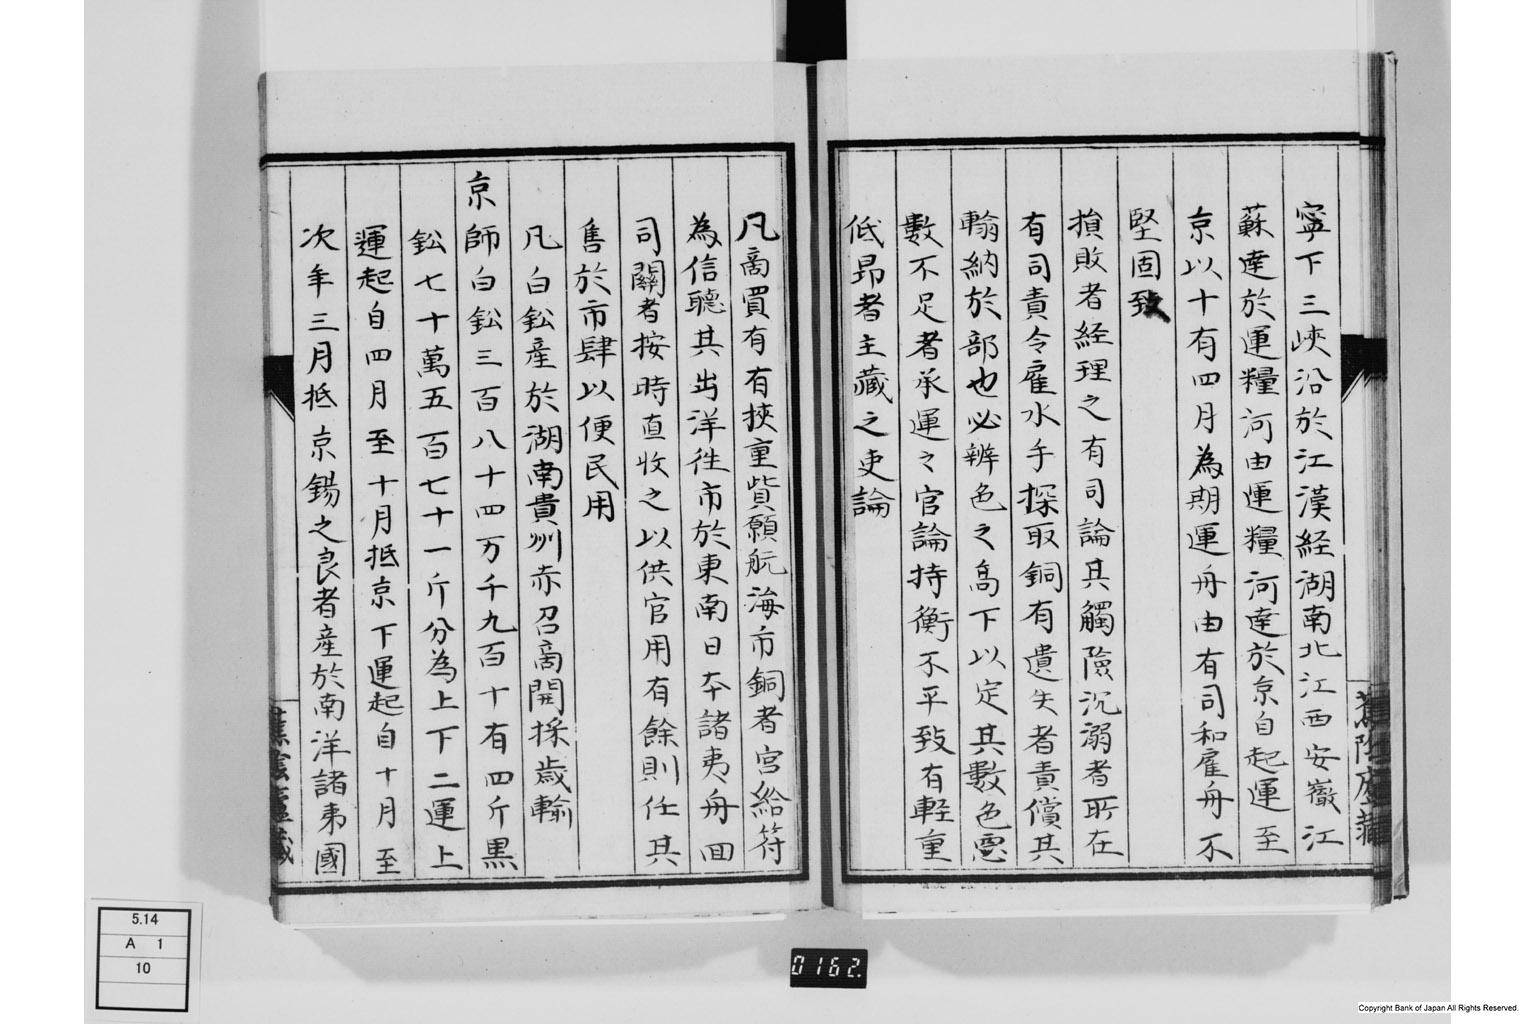 寧下三峽沿於江漢経湖南北江西安徽江
蘇達於運糧河由運糧河達於京自起運至
京以十有四月為期運舟由有司和雇舟不
堅固致
損敗者経理之有司論其觸險沉溺者所在
有司責令雇水手探取銅有遺失者責償其
輸納於部也必辨色之高下以定其數色惡
數不足者承運之官論持衡不平致有輕重
低昂者主藏之吏論
凡商賈有有挾重貲願航海市銅者官給符
為信聽其出洋徃市於東南日夲諸夷舟回
司關者按時直收之以供官用有餘則任其
售於市肆以便民用
凡白鈆產於湖南貴州亦召商開採歲輸
京師白鈆三百八十四万千九百十有四斤黒
鈆七十萬五百七十一斤分為上下二運上
運起自四月至十月抵京下運起自十月至
次年三月抵京錫之良者產於南洋諸夷國
蕉陰廬藏
5.14
A 1
10
0162.
Copyright Bank of Japan All Rights Reserved.